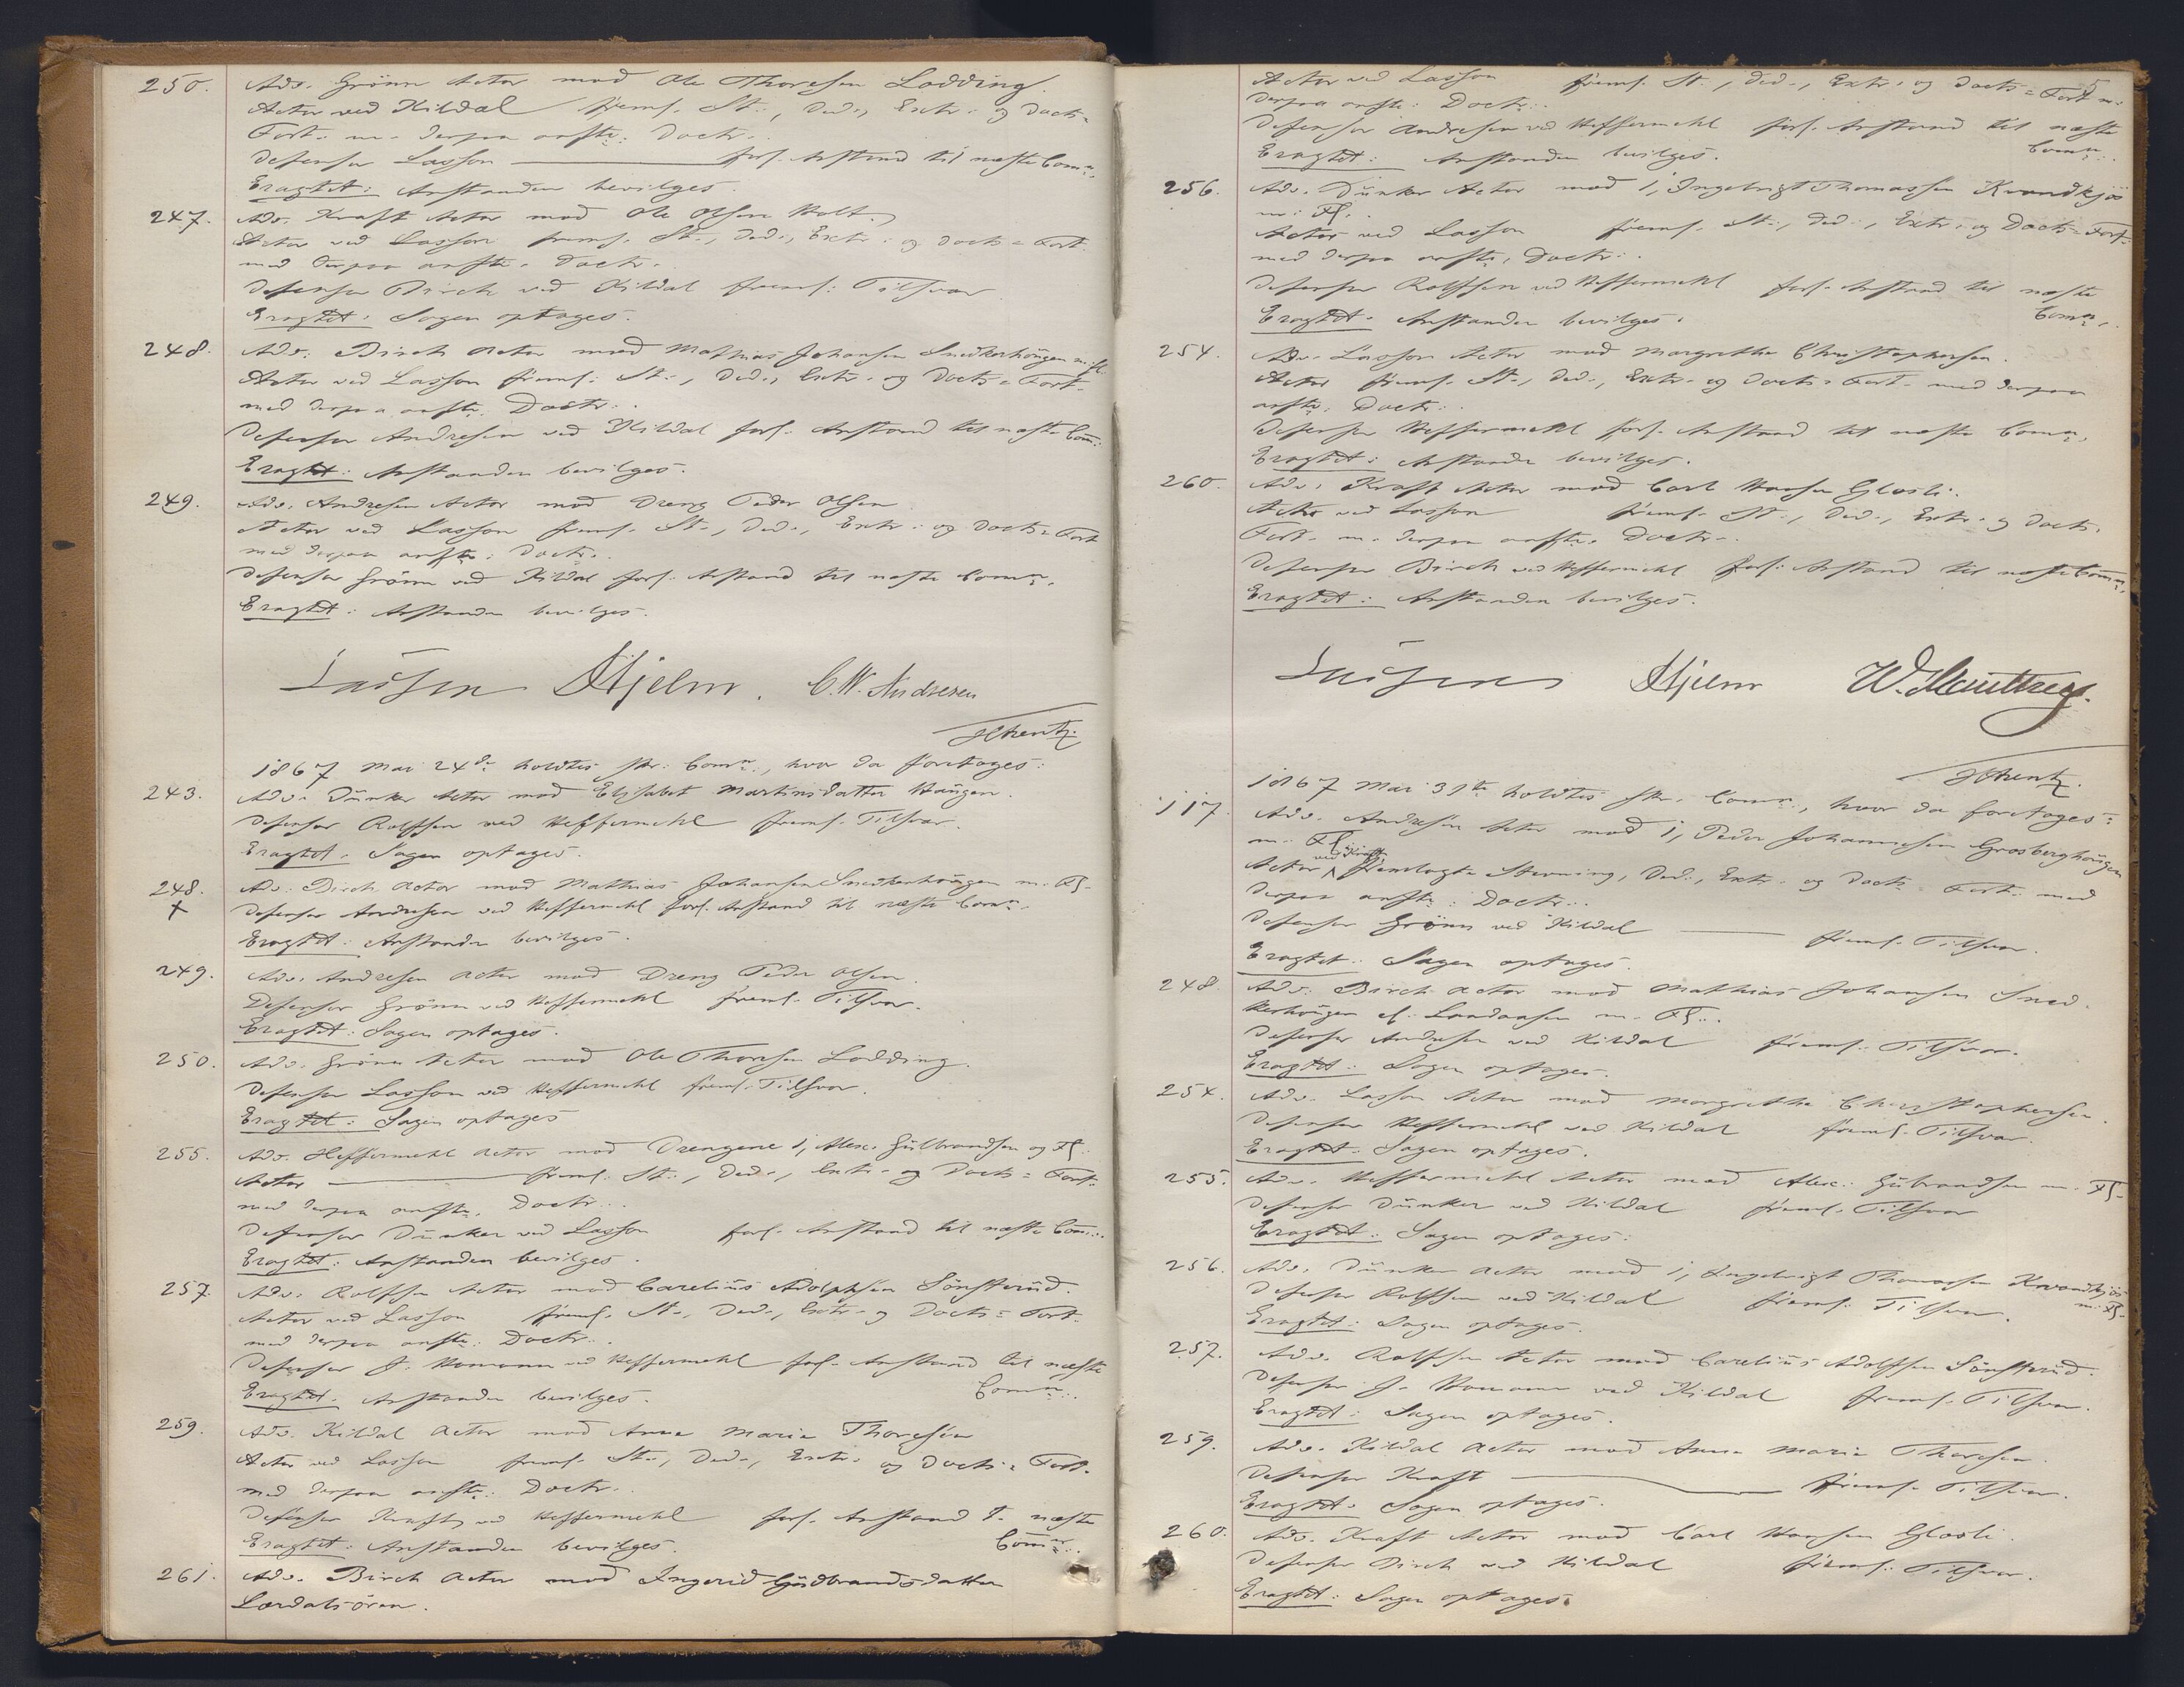 250. Adv. Grönn Actor mod Ole Thoresen Lodding.
Actor ved Kildal freml. St., Ded., Extr. og Docts=
Fort. m. derpaa anfte. Doctr.
Defensor Lasson forl. Anstand til næste Comn.
Eragtet: Anstanden bevilges.
247. Adv. Kraft Actor mod Ole Olsen Holt.
Actor ved Lasson freml. St., Ded., Extr. og Docts=Fort.
med derpaa anfte. Doctr.
Defensor Birch ved Kildal freml. Tilsvar
Eragtet: Sagen optages.
248. Adv. Birch Actor mod Mathias Johansen Snedkerhaugen m. Fl.
Actor ved Lasson freml. St., Ded., Extr. og Docts=Fort.
med derpaa anfte. Doctr.
Defensor Andresen ved Kildal forl. Anstand til næste Com.
Eragtet: Anstanden bevilges.
249. Adv. Andresen Actor mod Dreng Peder Olsen
Actor ved Lasson freml. St., Ded., Extr. og Docts=Fort
med derpaa anfte. Doctr.
Defensor Grönn ved Kildal forl. Anstand til næste Comn.
Eragtet: Anstanden bevilges.
Lassen Hjelm. C. W. Andresen
1867 Mai 24de holdtes skr. Comn., hvor da foretoges:
243. Adv. Dunker Actor mod Elisabet Martinsdatter Haugen.
Defensor Rolffsen ved Heffermehl freml. Tilsvar.
Eragtet. Sagen optages.
248. Adv. Birch Actor mod Mathias Johansen Snedkerhaugen m. Fl.
+ Defensor Andresen ved Heffermehl forl. Anstand til næste Comn.
Eragtet: Anstanden bevilges.
249. Adv. Andresen Actor mod Dreng Peder Olsen
Defensor Grönn ved Heffermehl freml. Tilsvar.
Eragtet: Sagen optages.
250. Adv. Grönn Actor mod Ole Thoresen Lodding.
Defensor Lasson ved Heffermehl freml. Tilsvar.
Eragtet: Sagen optages
255. Adv. Heffermehl Actor mod Drengene 1, Alex. Gulbrandsen og Fl.
Actor freml. St., Ded., Extr. og Docts=Fort.
med derpaa anfte. Doctr.
Defensor Dunker ved Lasson forl. Anstand til næste Com.
Eragtet: Anstanden bevilges.
257. Adv. Rolffsen Actor mod Carelius Adolphsen Sönsterud.
Actor ved Lasson freml. St., Ded., Extr. og Docts=Fort.
med derpaa anfte. Doctr.
Defensor J. Homann ved Heffermehl forl. Anstand til næste
Eragtet. Anstanden bevilges. Comn.
259. Adv. Kildal Actor mod Anne Maria Thoresen
Actor ved Lasson freml. St., Ded., Extr. og Docts=Fort.
med derpaa anfte. Doctr.
Defensor Kraft ved Heffermehl forl. Anstand t. næste
Eragtet: Anstanden bevilges. Comn.
261. Adv. Birch Actor mod Ingerid Gudbrandsdatter
Lærdalsören.
5
Actor ved Lasson freml. St., Ded., Extr. og Docts=Fort m.
derpaa anfte. Doctr.
Defensor Andresen ved Heffermehl forl. Anstand til næste
Eragtet: Anstanden bevilges. Comn.
256. Adv. Dunker Actor mod 1, Ingebrigt Thomassen Kvandkjös
m. Fl.
Actor ved Lasson freml. St., Ded., Extr. og Docts=Fort.
med derpaa anfte. Doctr.
Defensor Rolffsen ved Heffermehl forl. Anstand til næste
Eragtet. Anstanden bevilges. Comn.
254. Adv. Lasson Actor mod Margrethe Christophersen.
Actor freml. St., Ded., Extr. og Docts=Fort. med derpaa
anfte. Doctr.
Defensor Heffermehl forl. Anstand til næste Comn.
Eragtet: Anstanden bevilges.
260. Adv. Kraft Actor mod Carl Hansen Glosli.
Actor ved Lasson freml. St., Ded., Extr. og Docts.
Fort. m. derpaa anfte. Doctr.
Defensor Birch ved Heffermehl forl. Anstand til næste Comn.
Eragtet: Anstanden bevilges.
Lassen Hjelm
1867 Mai 31te holdtes skr. Comn., hvor da foretoges:
117. Adv. Andresen Actor mod 1, Peder Johannesen Grosberghaugen
m. Fl.
Actor ved Kraft fremlagte Stevning, Ded., Extr. og Docts. Fort. med
derpaa anfte. Doctr.
Defensor Grönn ved Kildal freml. Tilsvar.
Eragtet: Sagen optages.
248. Adv. Birch Actor mod Mathias Johansen Sned-
kerhaugen el. Landaasen m. Fl.
Defensor Andresen ved Kildal freml. Tilsvar.
Eragtet: Sagen optages.
254. Adv. Lasson Actor mod Margrethe Christophersen.
Defensor Heffermehl ved Kildal freml. Tilsvar.
Eragtet: Sagen optages.
255. Adv. Heffermehl Actor mod Alex. Gulbrandsen m. Fl.
Defensor Dunker ved Kildal freml. Tilsvar
Eragtet: Sagen optages.
256. Adv. Dunker Actor mod 1, Ingebrigt Thomassen Kvandkjös
Defensor Rolffsen ved Kildal freml. Tilsvar. m. Fl.
Eragtet: Sagen optages.
257. Adv. Rolffsen Actor mod Carelius Adolfsen Sönsterud.
Defensor J. Homann ved Kildal freml. Tilsvar.
Eragtet: Sagen optages.
259. Adv. Kildal Actor mod Anne Maria Thoresen.
Defensor Kraft freml. Tilsvar.
Eragtet. Sagen optages.
260. Adv. Kraft Actor mod Carl Hansen Glosli.
Defensor Birch ved Kildal freml. Tilsvar.
Eragtet: Sagen optages.